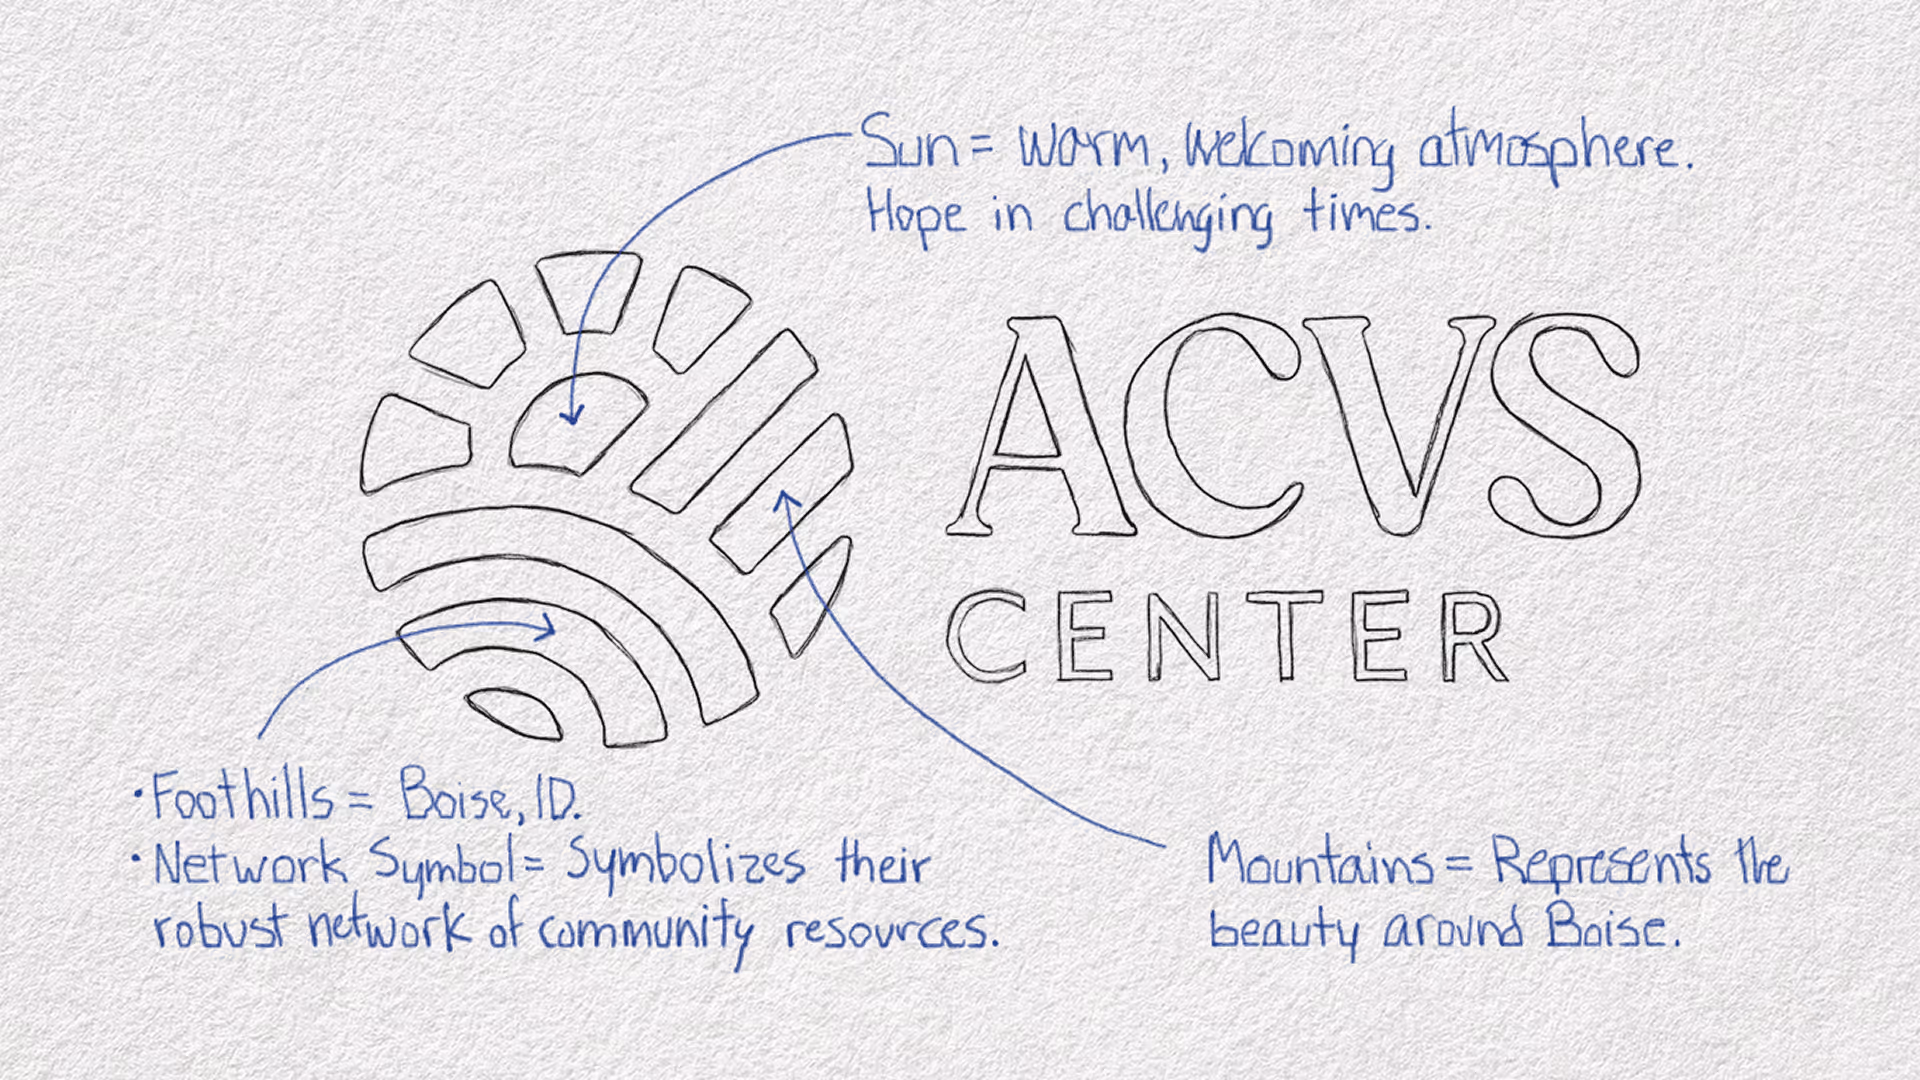 Sun = Warm, Welcoming atmosphere.
Hope in challenging times.
ACVS
CENTER
• Foothills = Boise, ID.
• Network Symbol = Symbolizes their
robust network of community resources.
Mountains = Represents the
beauty around Boise.